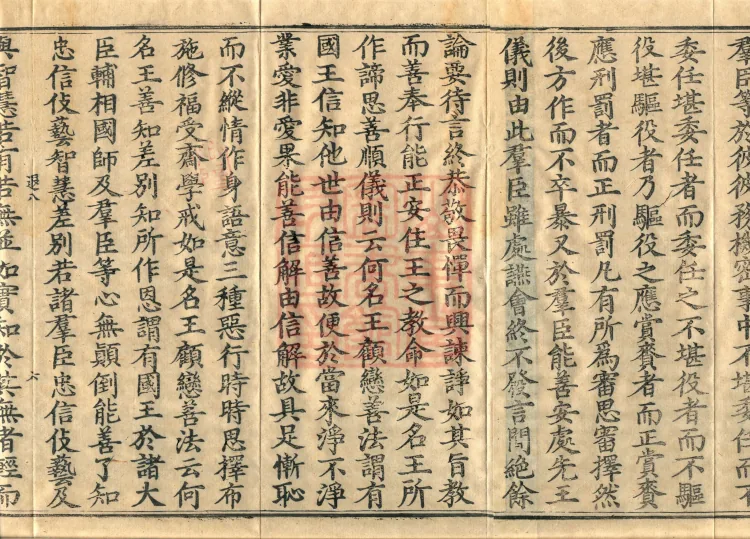 羣臣等於彼彼務機密事中不堪委任而不
委任堪委任者而委任之不堪役者而不驅
役堪驅役者乃驅役之應賞賚者而正賞賚
應刑罰者而正刑罰凡有所為審思審擇然
後方作而不卒暴又於羣臣能善安處先王
儀則由此羣臣雖處讌會終不發言間絕餘
論要待言終恭敬畏憚而興諫諍如其旨教
而善奉行能正安住王之教命如是名王所
作諦思善順儀則云何名王顧戀善法謂有
國王信知他世由信善故便於當來淨不淨
業愛非愛果能善信解由信解故具足慚恥
而不縱情作身語意三種惡行時時思擇布
施修福受齋學戒如是名王顧戀善法云何
名王善知差別知所作恩謂有國王於諸大
臣輔相國師及羣臣等心無顛倒能善了知
忠信伎藝智慧差別若諸羣臣忠信伎藝及
退八 六
與智慧若有若無並如實知於其無者輕而